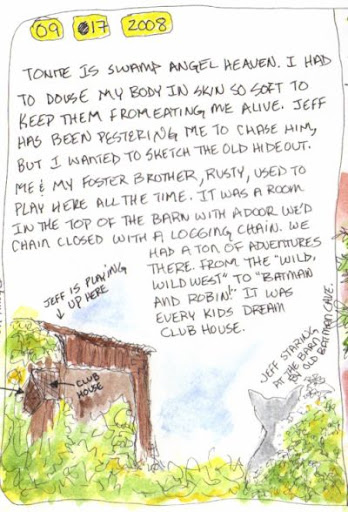 09 17 2008
TONITE IS SWAMP ANGEL HEAVEN. I HAD
TO DOUSE MY BODY IN SKIN SO SOFT TO
KEEP THEM FROM EATING ME ALIVE. JEFF
HAS BEEN PESTERING ME TO CHASE HIM,
BUT I WANTED TO SKETCH THE OLD HIDEOUT.
ME & MY FOSTER BROTHER, RUSTY, USED TO
PLAY HERE ALL THE TIME. IT WAS A ROOM
IN THE TOP OF THE BARN WITH A DOOR WE'D
CHAIN CLOSED WITH A LOGGING CHAIN. WE
HAD A TON OF ADVENTURES
THERE. FROM THE "WILD,
WILD WEST" TO "BATMAN
AND ROBIN!" IT WAS
EVERY KIDS DREAM
CLUB HOUSE.
JEFF IS PLAYING
UP HERE
CLUB
HOUSE
JEFF STARING
AT THE BARN
BY OLD BATMAN CAVE.